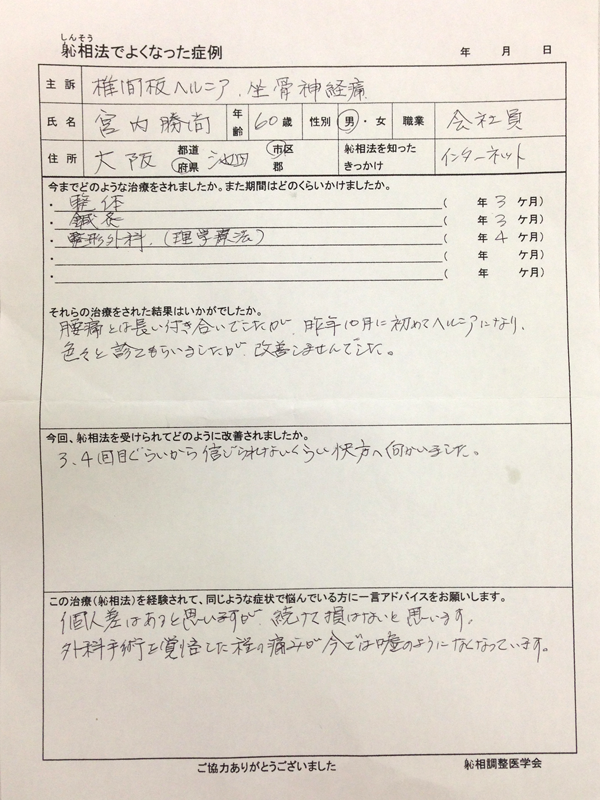 しんそう
躰相法でよくなった症例
年 月 日
主訴 椎間板ヘルニア、坐骨神経痛
氏名 宮内勝尚 年齢 60歳 性別 男・女 職業 会社員
住所 大阪 都道府県 池田 市区郡 躰相法を知ったきっかけ インターネット
今までどのような治療をされましたか。また期間はどのくらいかけましたか。
・整体 ( 年 3 ケ月)
・鍼灸 ( 年 3 ケ月)
・整形外科.(理学療法) ( 年 4 ケ月)
・ ( 年 ケ月)
・ ( 年 ケ月)
それらの治療をされた結果はいかがでしたか。
腰痛とは長い付き合いでしたが、昨年10月に初めてヘルニアになり、
色々と診てもらいましたが、改善しませんでした。
今回、躰相法を受けられてどのように改善されましたか。
3、4回目ぐらいから信じられないくらい快方へ向かいました。
この治療(躰相法)を経験されて、同じような症状で悩んでいる方に一言アドバイスをお願いします。
個人差はあると思いますが、続けて損はないと思います。
外科手術を覚悟した程の痛みが今では嘘のようになくなっています。
ご協力ありがとうございました
躰相調整医学会